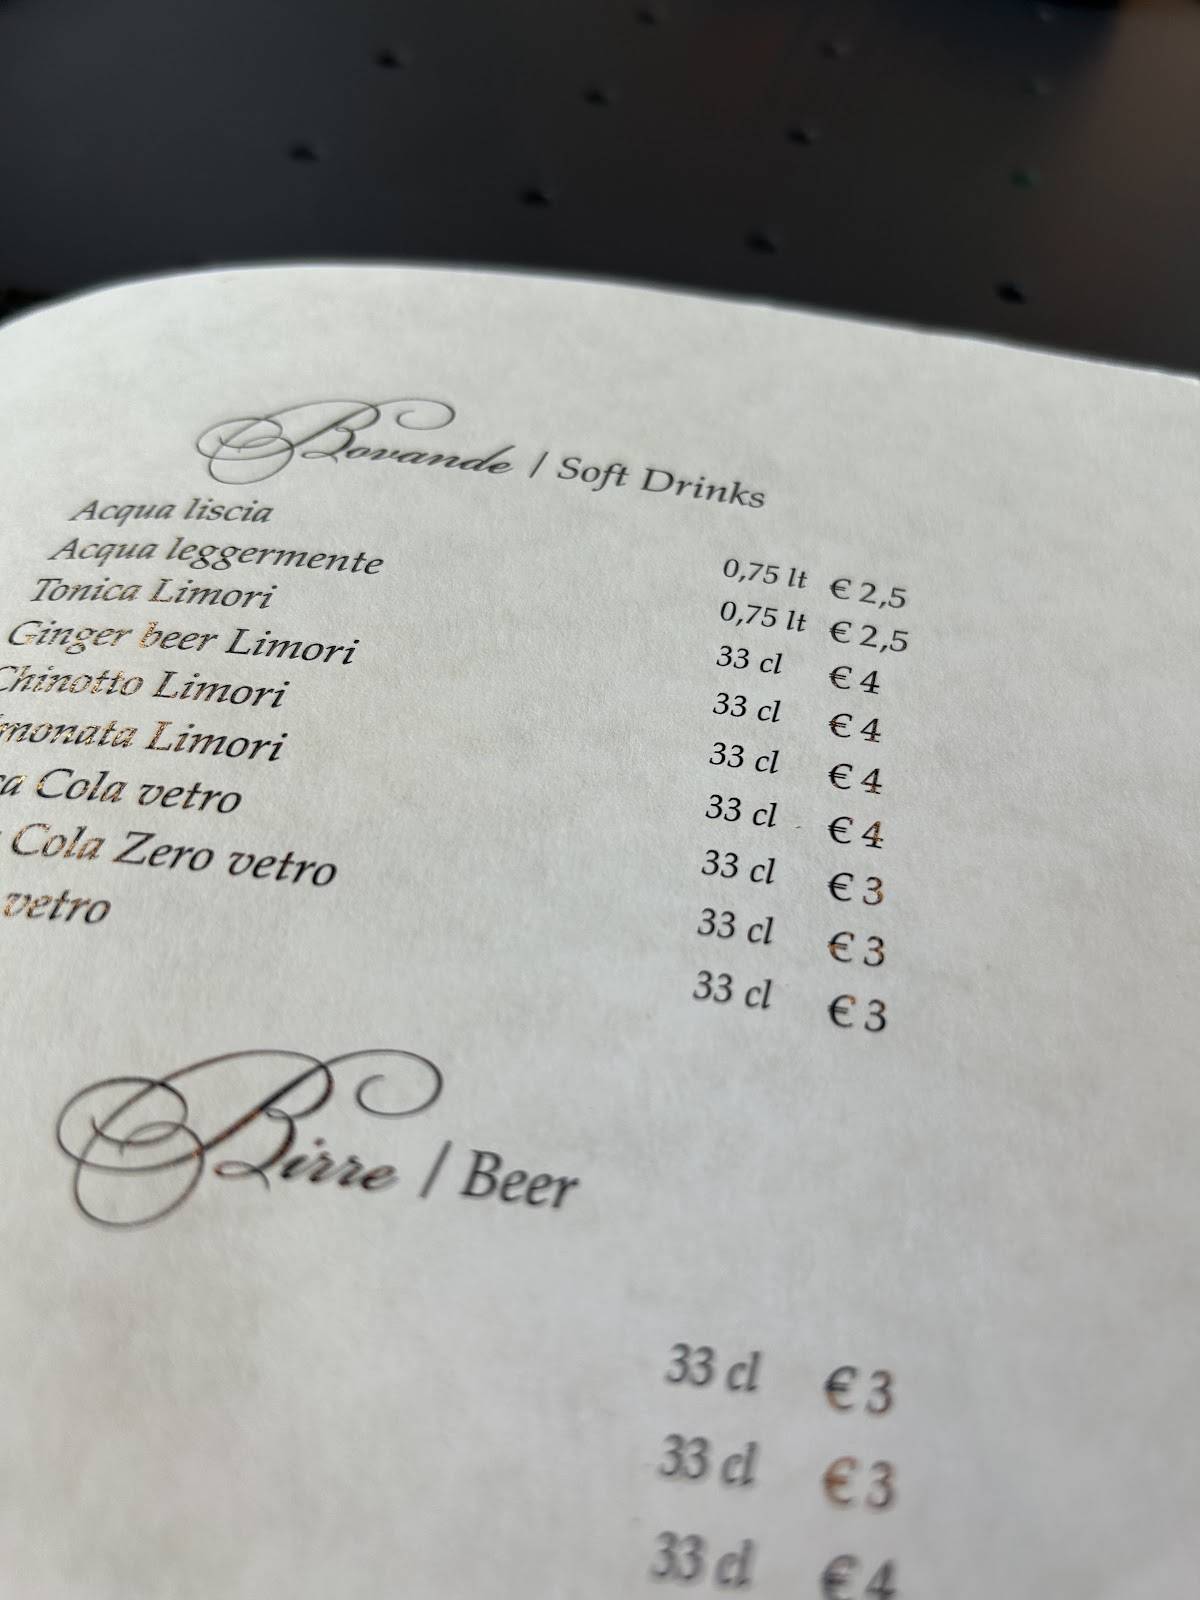 Bovande | Soft Drinks
Acqua liscia 0,75 lt € 2,5
Acqua leggermente 0,75 lt € 2,5
Tonica Limori 33 cl € 4
Ginger beer Limori 33 cl € 4
Chinotto Limori 33 cl € 4
monata Limori 33 cl € 4
ca Cola vetro 33 cl € 3
Cola Zero vetro 33 cl € 3
vetro 33 cl € 3
Birre | Beer
33 cl € 3
33 cl € 3
33 cl € 4